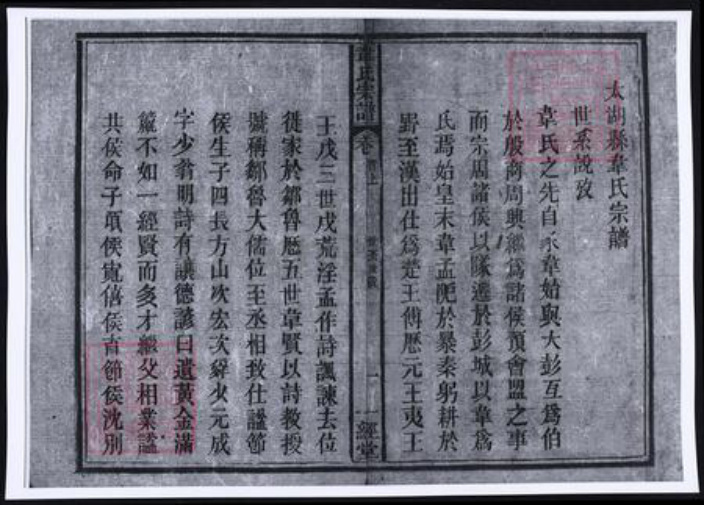 太湖縣韋氏宗譜
世系說攷
韋氏之先自豕韋始與大彭互為伯
於殷商周興繼為諸侯預會盟之事
而宗周諸侯以隊遷於彭城以韋為
氏焉始皇末韋孟阨於暴秦躬耕於
野至漢出仕為楚王傅歷元王夷王
韋氏宗譜
卷
首上
一
一經堂
王戊三世戊荒淫孟作詩諷諫去位
徙家於鄒魯歷五世韋賢以詩教授
號稱鄒魯大儒位至丞相致仕謚節
侯生子四長方山次宏次舜少元成
字少翁明詩有讓德諺曰遺黃金滿
籯不如一經賢而多才繼父相業謚
共侯命子頃侯寬僖侯育節侯沈別